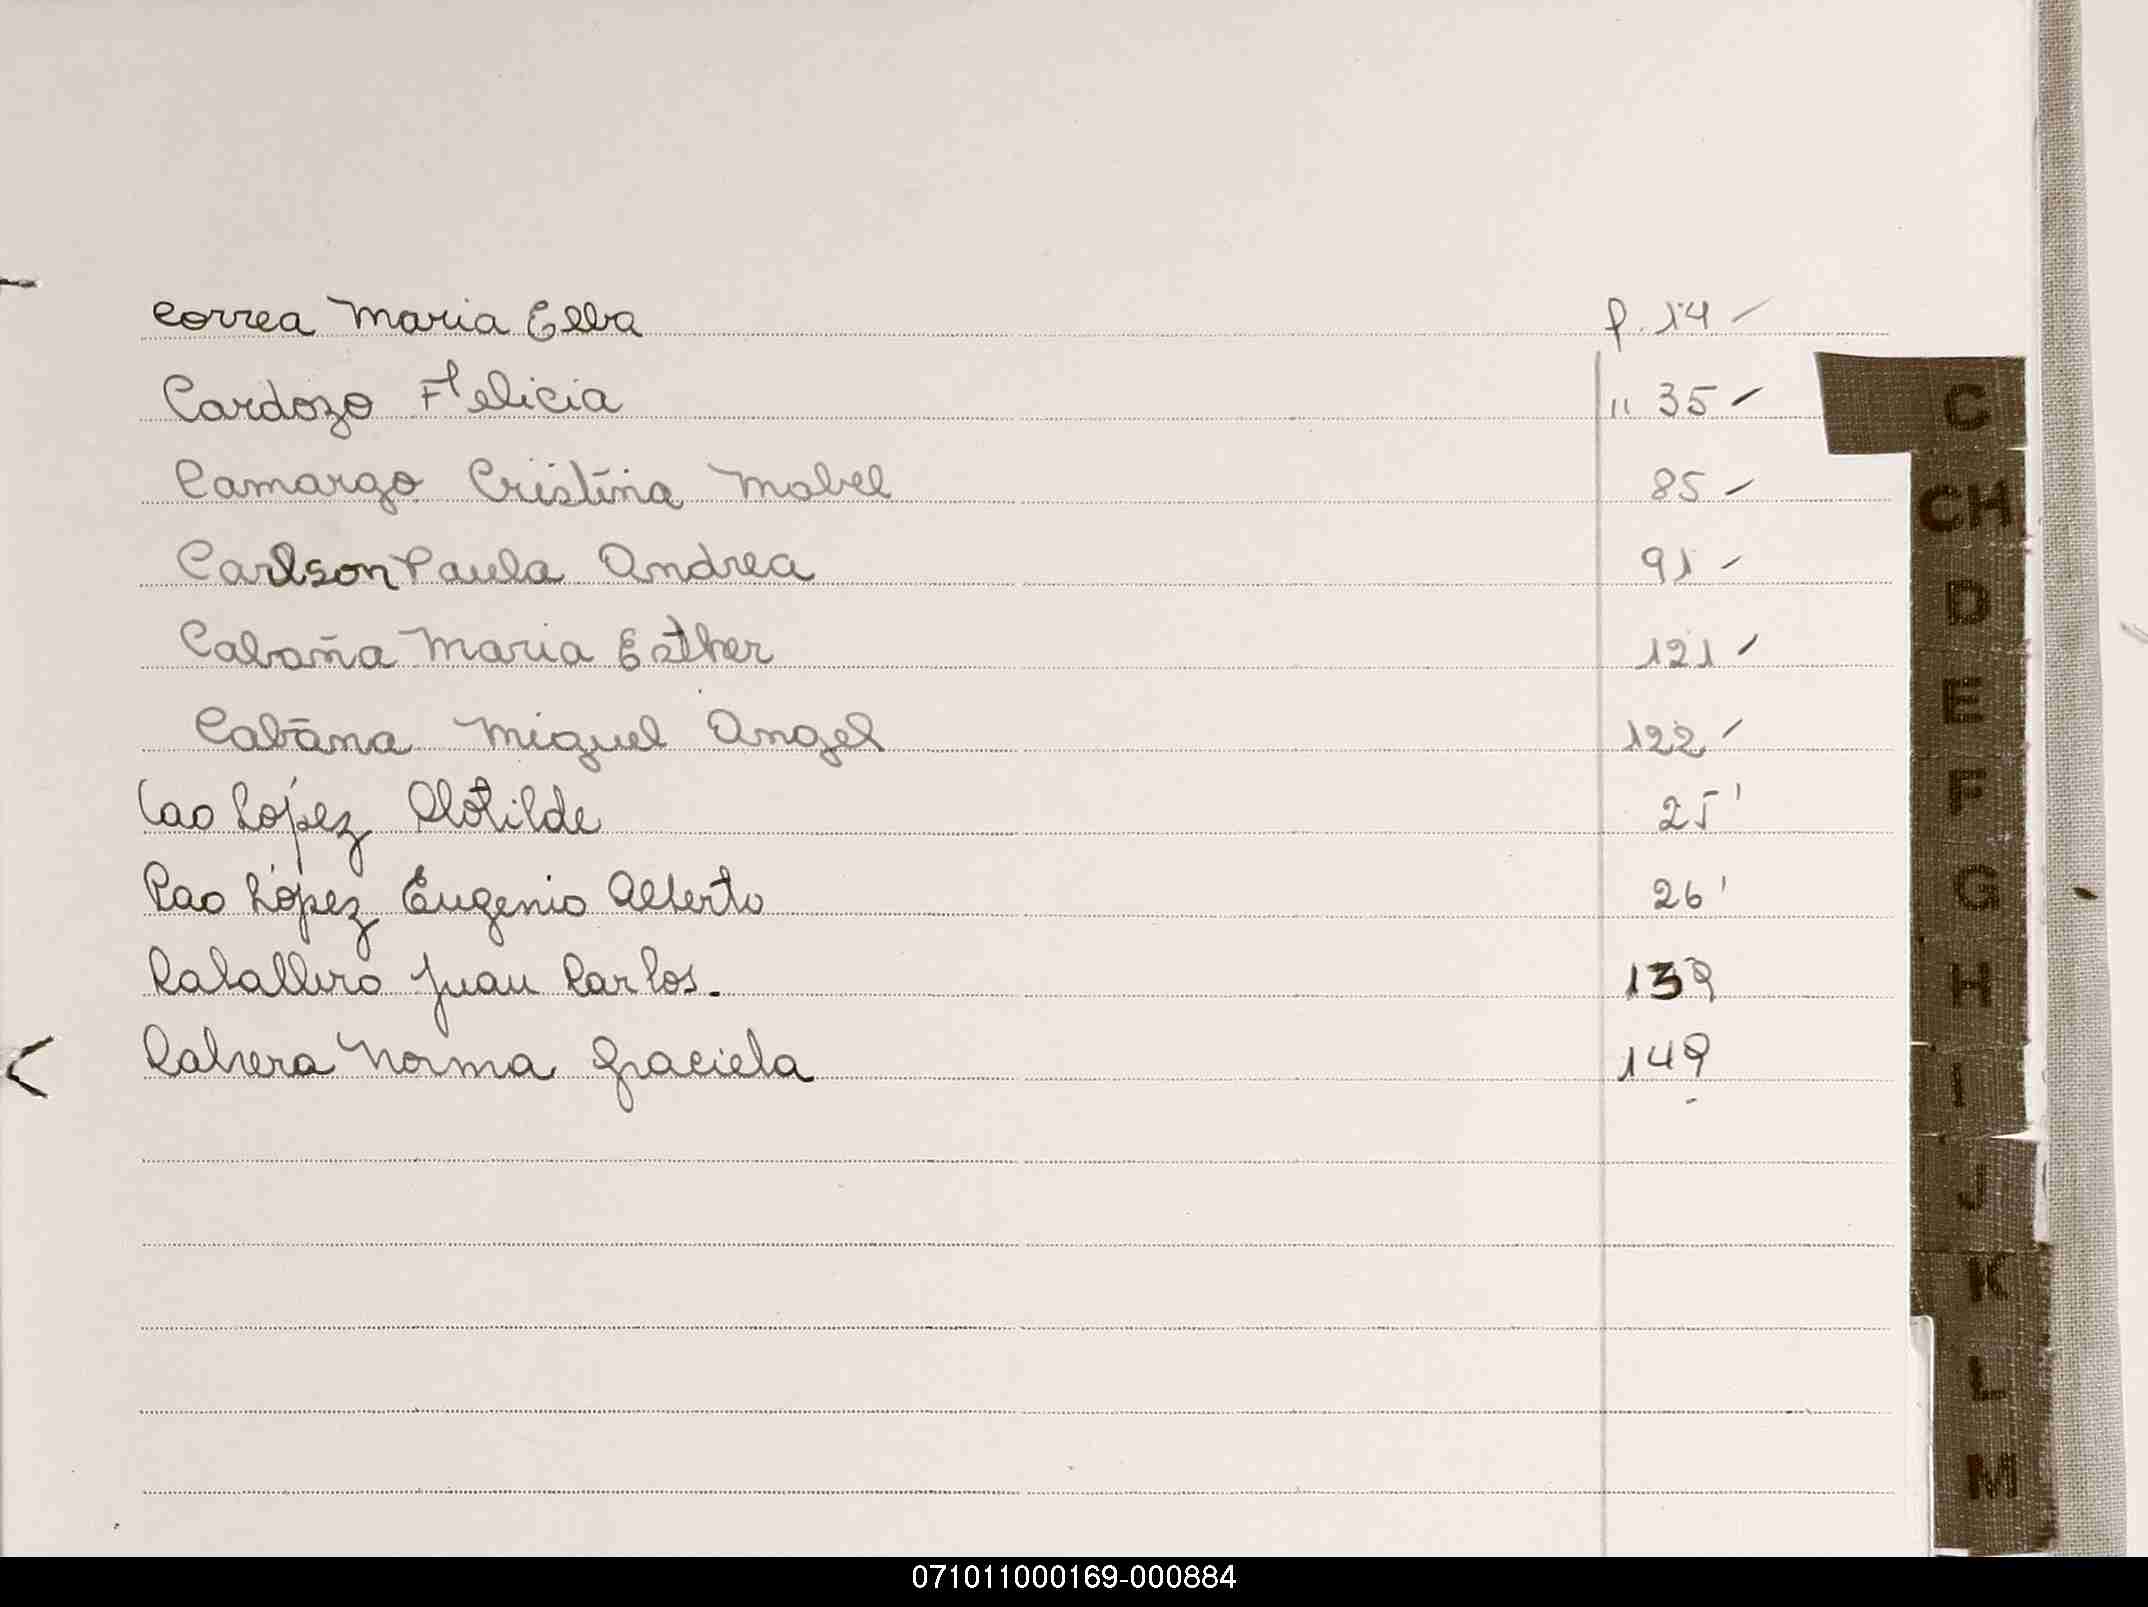 Correa Maria Elba p. 14 -
Cardozo Felicia " 35 -
Camargo Cristina Mabel 85 -
Carlson Paula Andrea 91 -
Cabaña Maria Esther 121 -
Cabãna Miguel Angel 122 -
Cao López Clotilde 25 '
Cao López Eugenio Alberto 26 '
Caballero Juan Carlos. 139
Cabrera Norma Graciela 149
C
CH
D
E
F
G
H
I
J
K
L
M
071011000169-000884